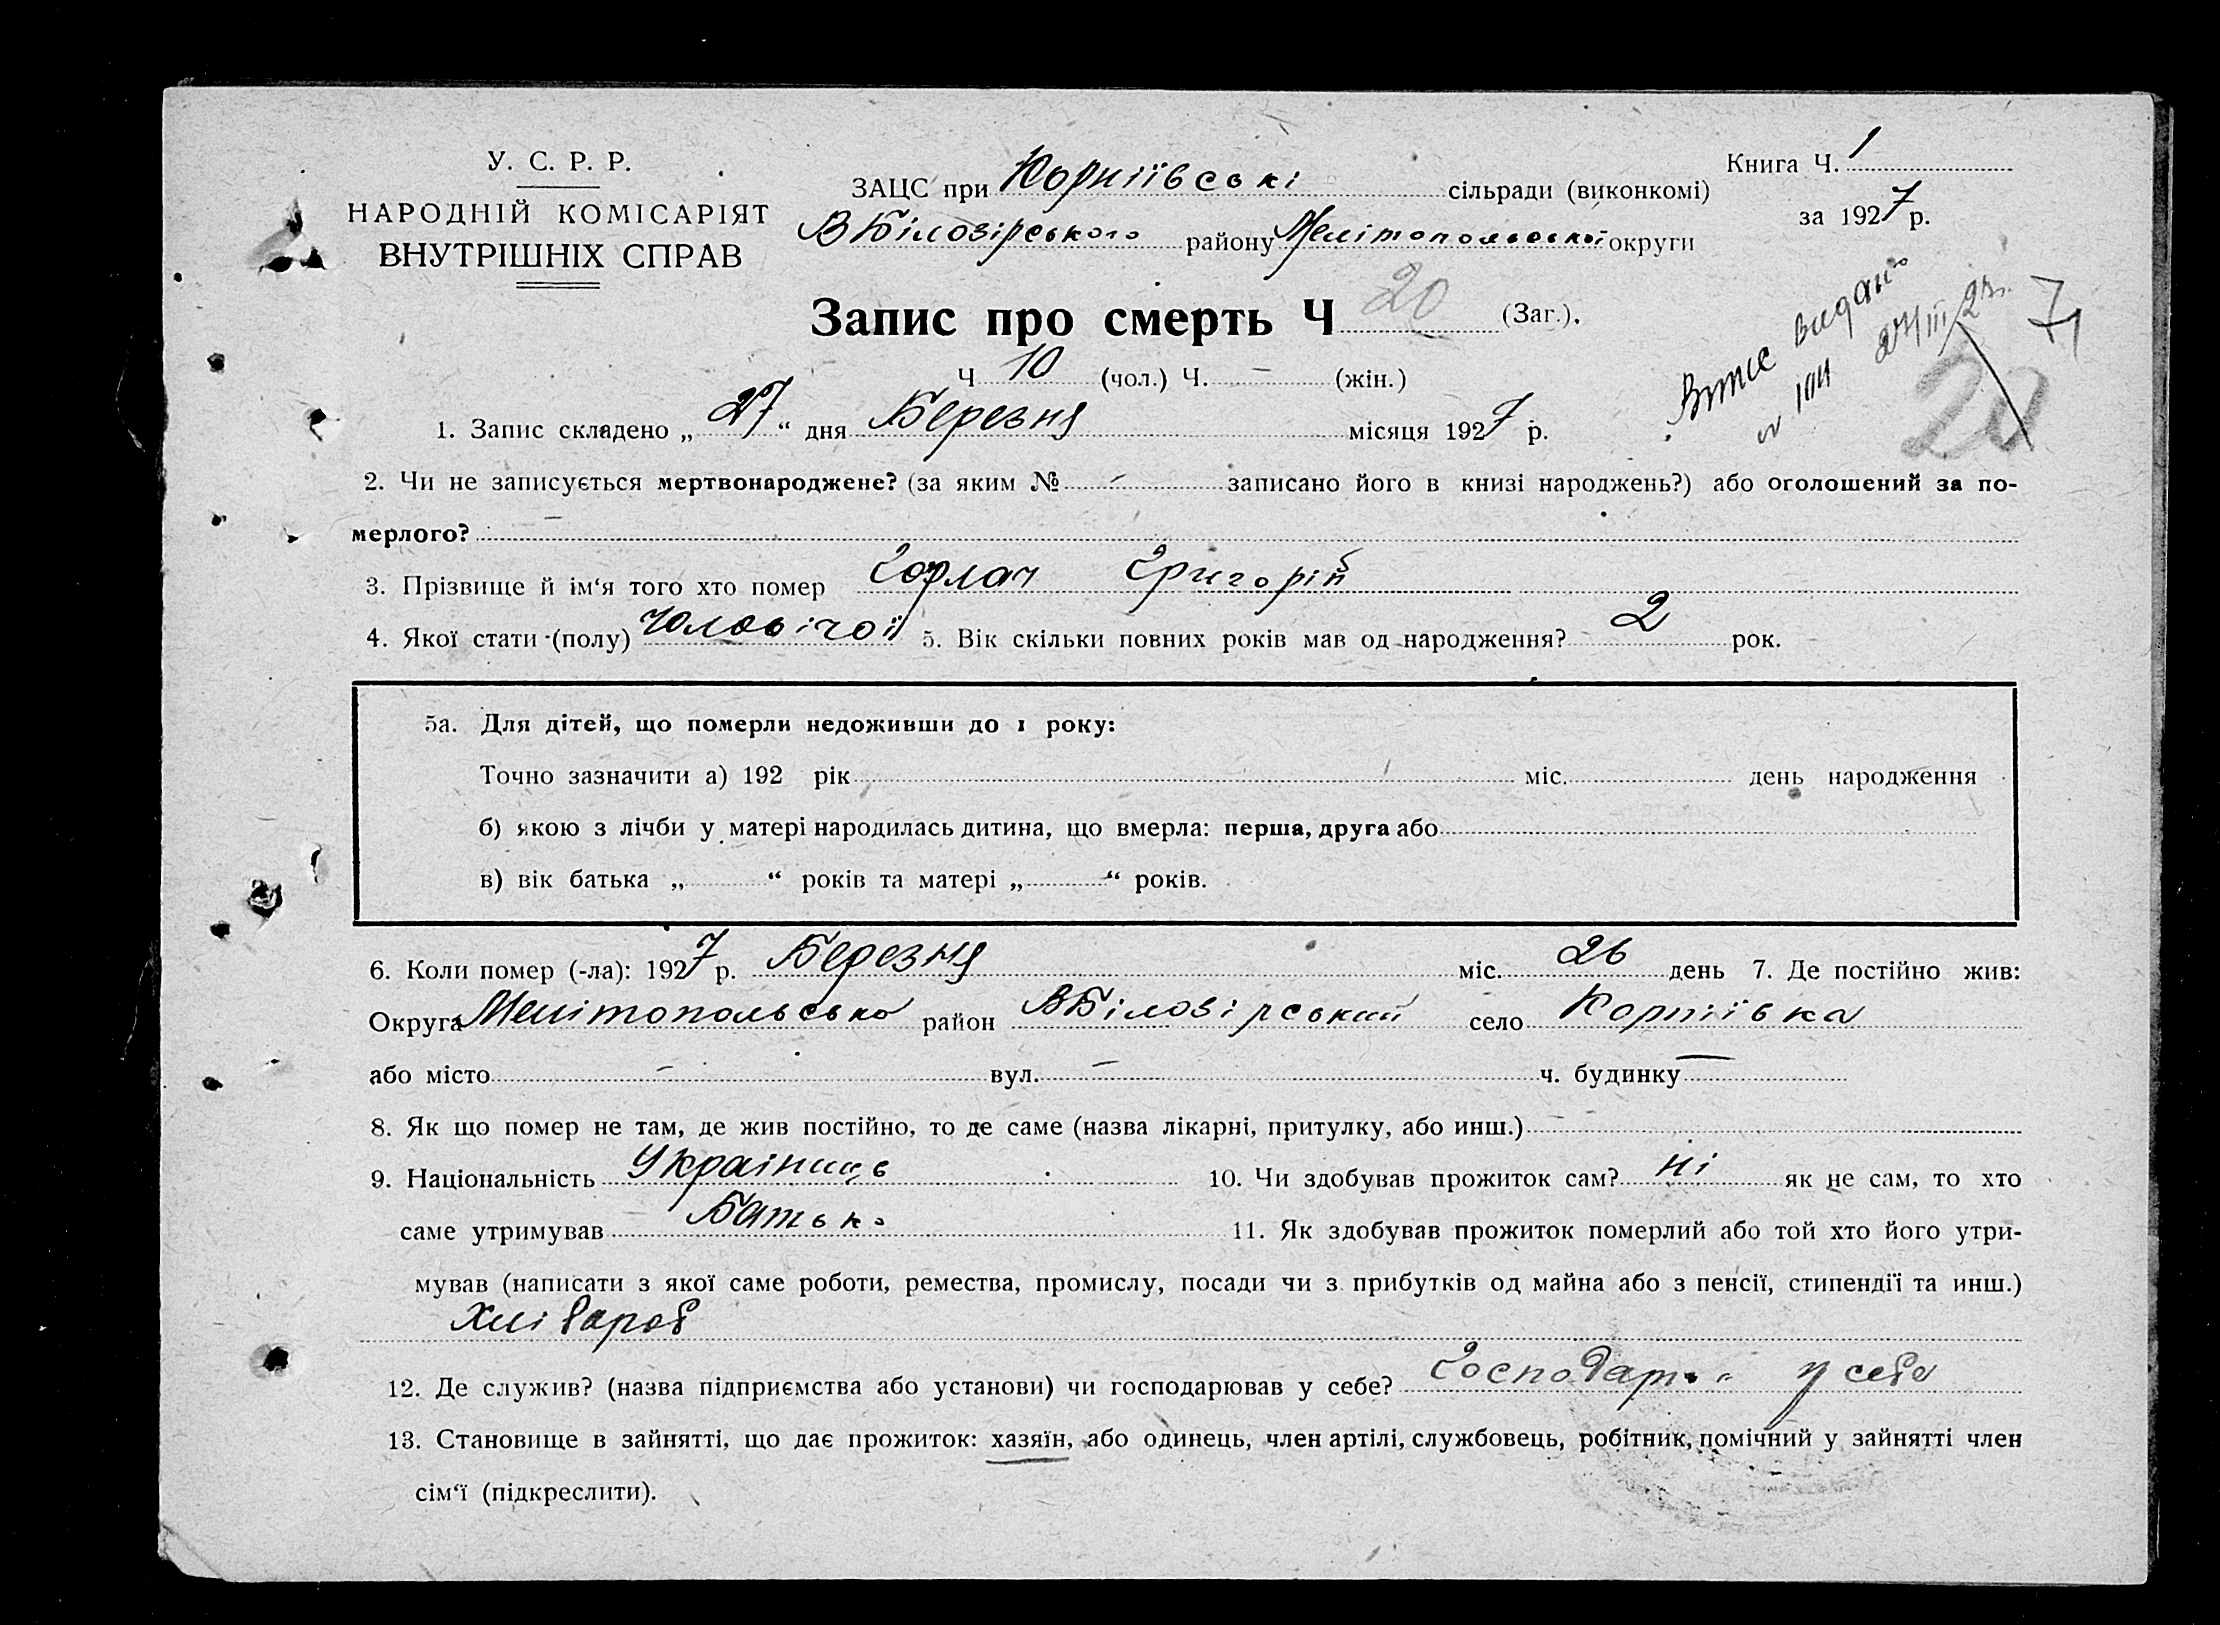 У. С. Р. Р.
НАРОДНІЙ КОМІСАРІЯТ
ВНУТРІШНІХ СПРАВ
ЗАЦС при Корніївські сільради (виконкомі)
ВБілозірського району Мелітопольської округи
Книга Ч. 1
за 1927 р.
Запис про смерть Ч 20 (Заг.).
Витяг видано
27/III 27
20
Ч 10 (чол.) Ч. – (жін.)
1. Запис складено „27“ дня Березня місяця 1927 р.
2. Чи не записується мертвонароджене? (за яким № – записано його в книзі народжень?) або оголошений за по-
мерлого? –
3. Прізвище й ім‘я того хто помер Горлач Григорій
4. Якої стати (полу) чоловічої 5. Вік скільки повних років мав од народження? 2 рок.
5а. Для дітей, що померли недоживши до 1 року:
Точно зазначити а) 192 рік міс. день народження
б) якою з лічби у матері народилась дитина, що вмерла: перша, друга або
в) вік батька „ “ років та матері „ “ років.
6. Коли помер (-ла): 1927 р. Березня міс. 26 день 7. Де постійно жив:
Округа Мелітопольська район ВБілозірський село Корніївка
або місто – вул. – ч. будинку –
8. Як що помер не там, де жив постійно, то де саме (назва лікарні, притулку, або инш.)
9. Національність Українець 10. Чи здобував прожиток сам? ні як не сам, то хто
саме утримував Батько 11. Як здобував прожиток померлий або той хто його утри-
мував (написати з якої саме роботи, ремества, промислу, посади чи з прибутків од майна або з пенсії, стипендії та инш.)
Хлібороб
12. Де служив? (назва підприємства або установи) чи господарював у себе? у себе
13. Становище в зайнятті, що дає прожиток: хазяїн, або одинець, член артілі, службовець, робітник, помічний у зайнятті член
сім‘ї (підкреслити).